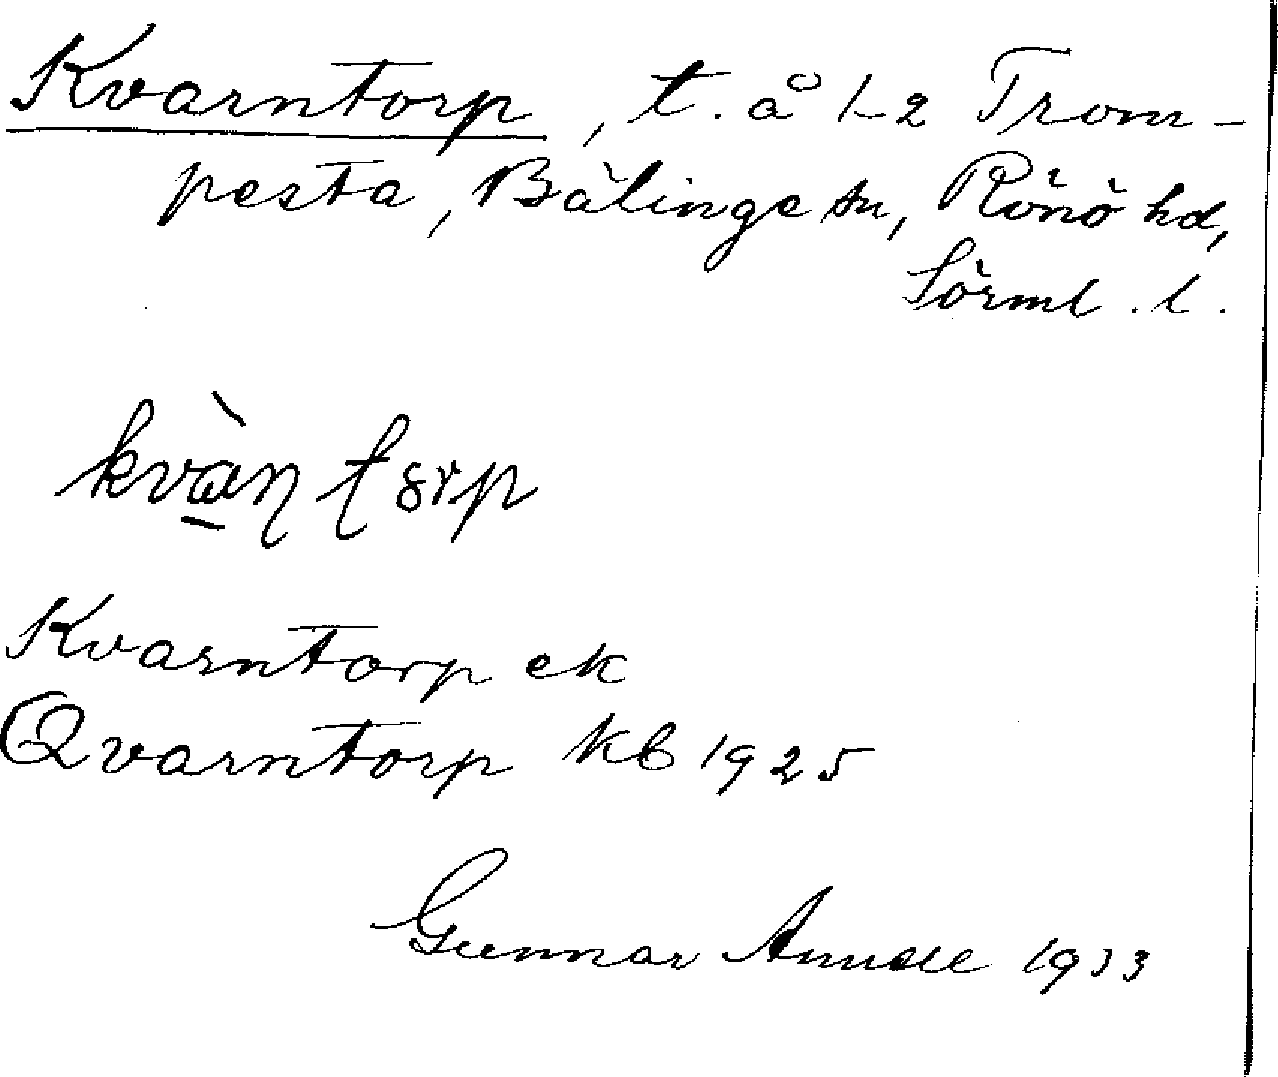 Kvarntorp, t. å 1-2 Trom-
pesta, Bälinge sn, Rönö hd,
Sörml. l.
kvàn torp
Kvarntorp ek
Qvarntorp kb 1925
Gunnar 1933